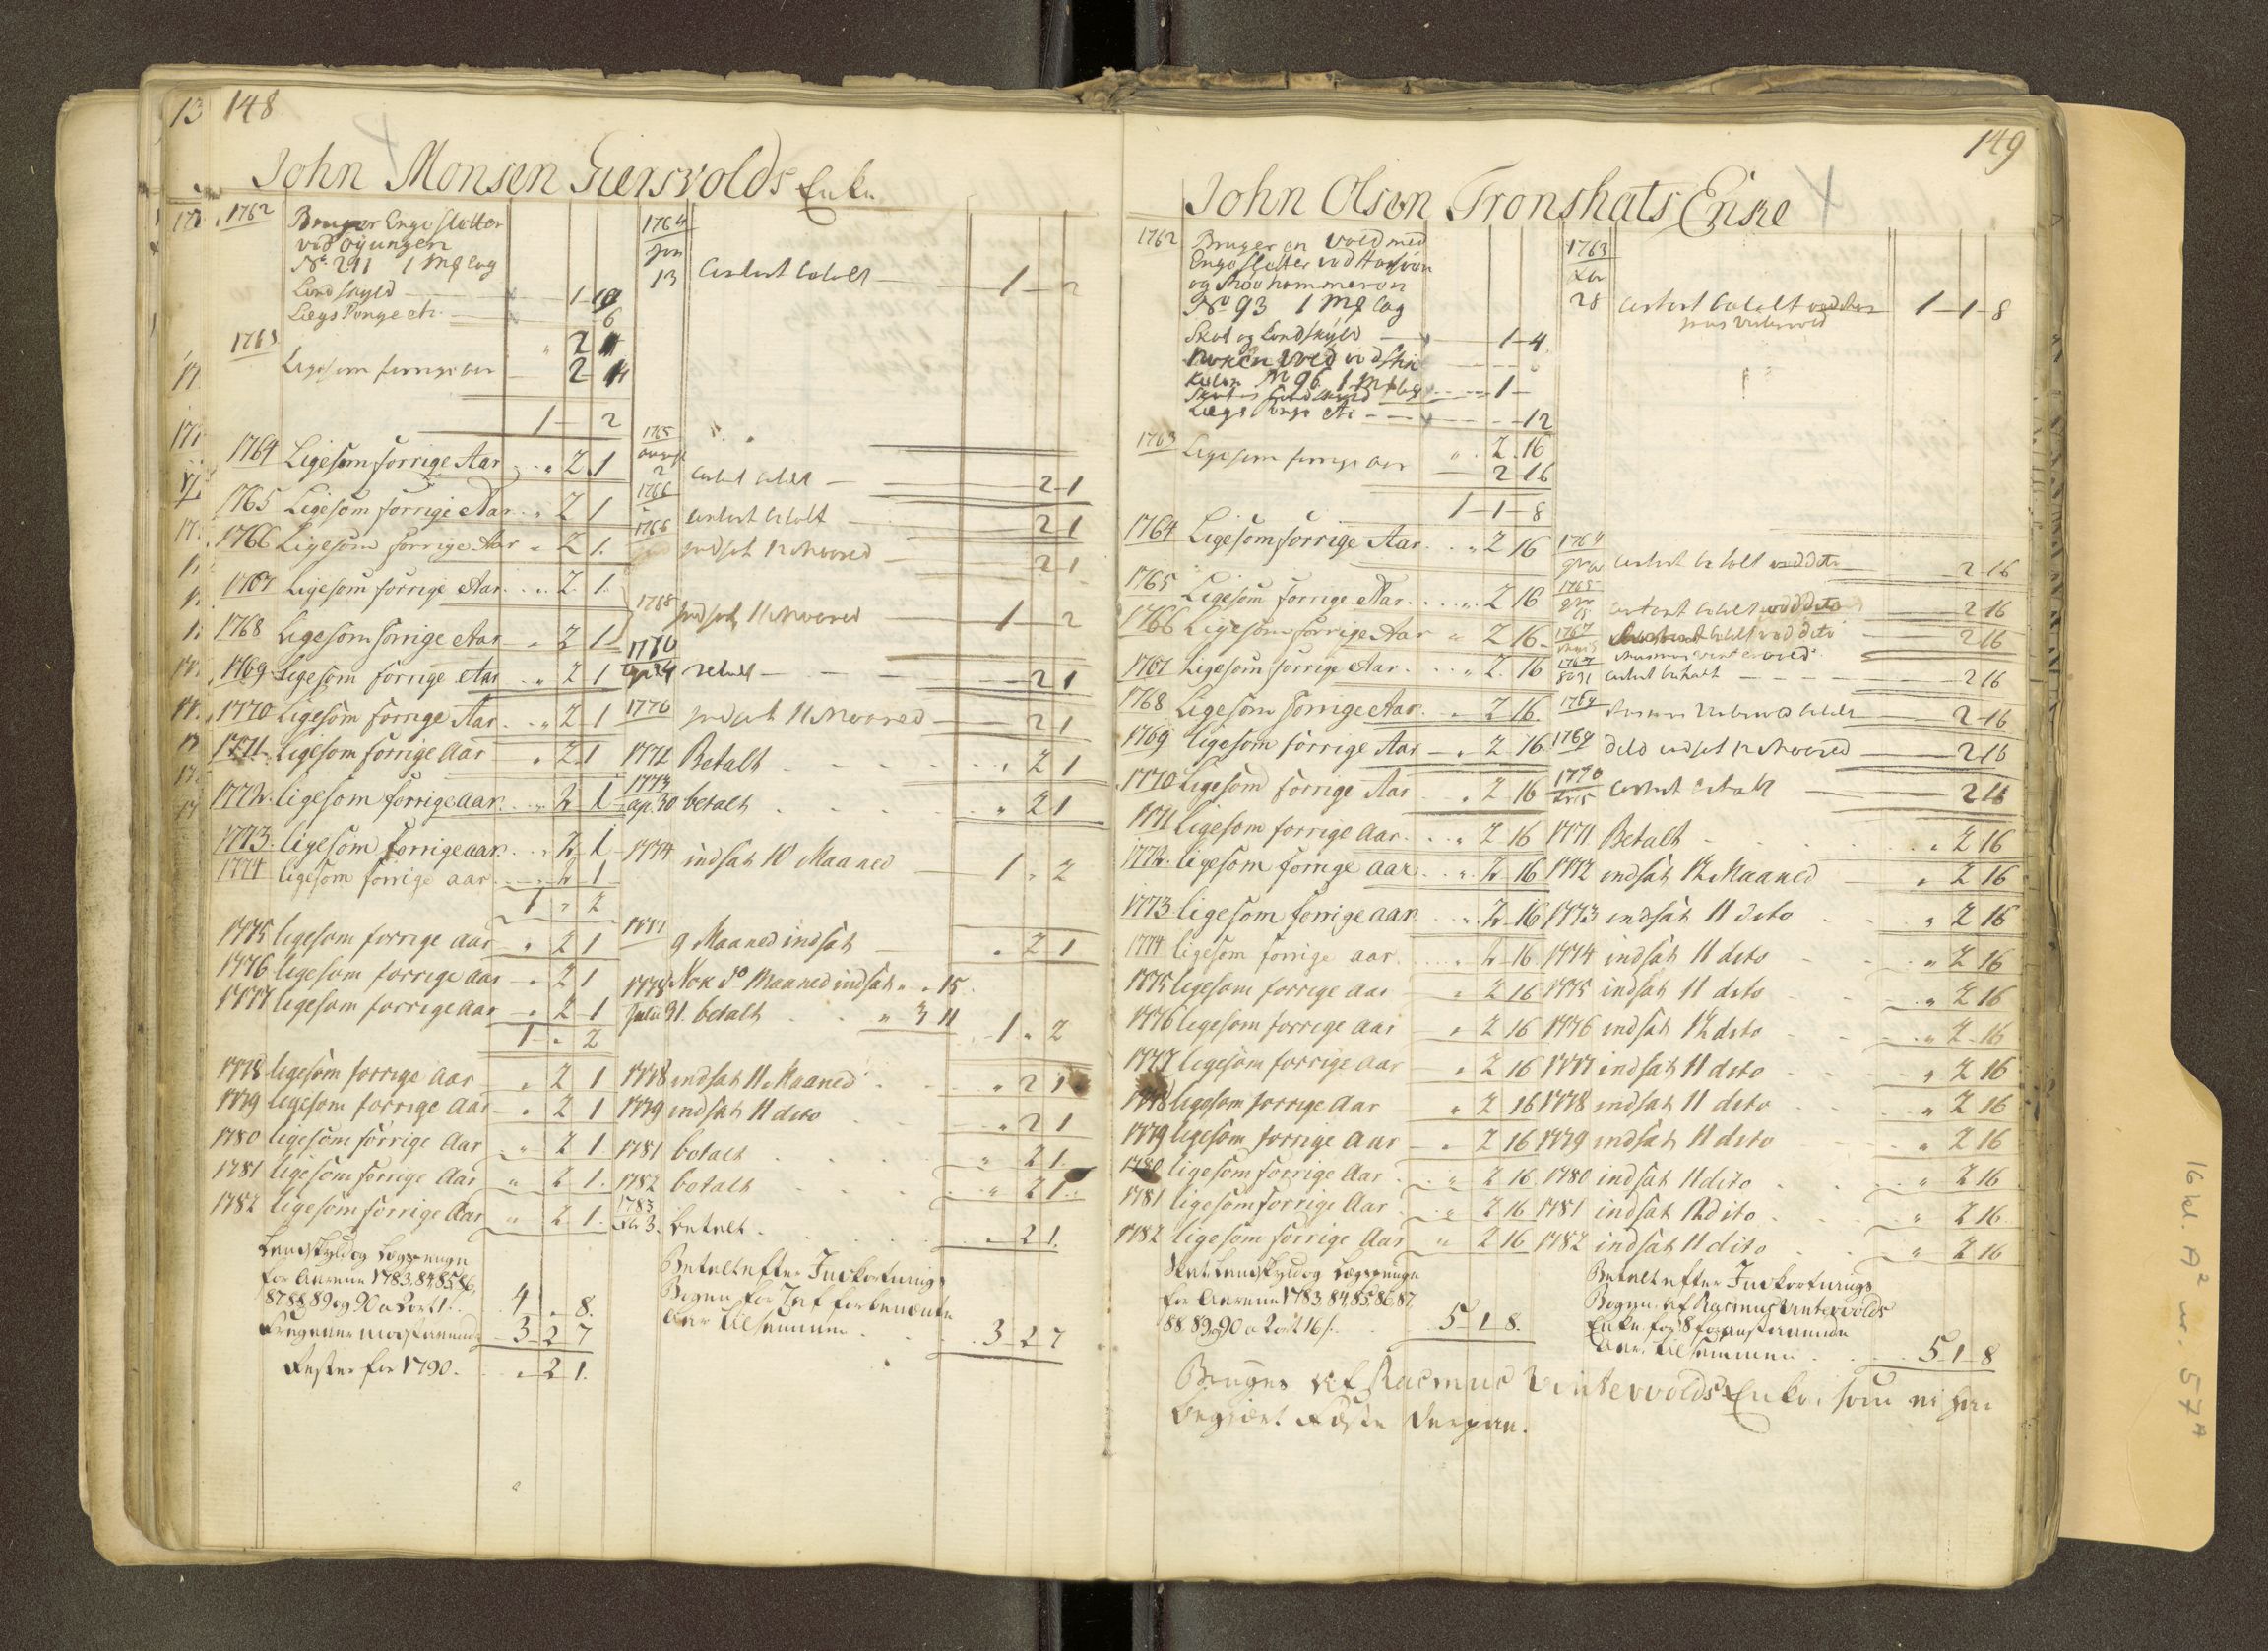 13 148
John Monsen Giersvolds Enke
1762 Bruger Enge Sletter
ved øyungen
No. 211 1 Mk lag
Land skyld 1 19
Lægs Penge etc. 6
" 2 1
1763 Ligesom forrige aar 2 1
1 — 2
1764 Ligesom forrige Aar " 2 1
1765 Ligesom forrige Aar " 2 1
1766 Ligesom forrige Aar " 2 1.
1767 Ligesom forrige Aar " 2 1.
1768 Ligesom forrige Aar " 2 1
1769 Ligesom forrige Aar " 2 1
1770 Ligesom forrige Aar " 2 1
1771 ligesom forrige Aar " 2 1
1772. ligesom forrige aar " 2 1
1773. ligesom forrige aar " 2 1
1774 ligesom forrige aar " 2 1
1 " 2
1775 ligesom forrige aar " 2 1
1776 ligesom forrige aar " 2 1
1777 ligesom forrige aar " 2 1
1 " 2
1778 ligesom forrige aar " 2 1
1779 ligesom forrige aar " 2 1
1780 ligesom forrige Aar " 2 1
1781 ligesom forrige Aar " 2 1.
1782 ligesom forrige Aar " 2 1.
Landskyld og Lægspenge
for Aarene 1783, 84, 85, 86,
87 88 89 og 90 a 2 ort 1 s. 4 " 8.
3 2 7
Rester for 1790. " 2 1.
1764
13 Contant betalt 1 — 2
1765
august
2 Contant betalt 2 1
1766 Contant betalt 2 1
1768 indsat 12 Maaned 2 1
1768 indsat 11 Maaned 1 — 2
1770
24 betalt 2 1
1770 indsat 11 Maaned 2 1
1772 Betalt " 2 1
1773
ap. 30 betalt " 2 1
1774 indsat 10 Maaned 1 " 2
1777 9 Maaned indsat " 2 1
1778 Nok do Maaned indsat " " 15
Julii 31. betalt " 3 11 1 " 2
1778 indsat 11 Maaned " 2 1
1779 indsat 11 dito " 2 1
1781 betalt " 2 1.
1782 betalt " 2 1.
1783
3. betalt. " 2 1.
Betalt efter Indkortnings
Bogen for 7 af forbenævnte
Aar tilsammen 3 2 7
149
John Olsen Tronshats Enke
1762 Bruger en Vold med
Enge Sletter ved
No. 93 1 Mk lag
Skat og Landskyld 1 — 4
nok en Vold ved
No 96 1 Mk lag
Skat og Landskyld 1 —
Lægs Penge etc 12
" 2 16
1763 Ligesom forrige aar 2 16
1 — 1 — 8
1764 Ligesom forrige Aar " 2 16
1765 Ligesom forrige Aar " 2 16
1766 Ligesom forrige Aar " 2 16
1767 Ligesom forrige Aar " 2 16
1768 Ligesom forrige Aar " 2 16.
1769 ligesom forrige Aar " 2 16
1770 Ligesom forrige Aar " 2 16
1771 ligesom forrige Aar " 2 16
1772. ligesom forrige aar " 2 16
1773 ligesom forrige aar " 2 16
1774 ligesom forrige aar " 2 16
1775 ligesom forrige aar " 2 16
1776 ligesom forrige aar " 2 16
1777 ligesom forrige aar " 2 16
1778 ligesom forrige Aar " 2 16
1779 ligesom forrige Aar " 2 16
1780 ligesom forrige Aar " 2 16
1781 ligesom forrige Aar " 2 16
1782 ligesom forrige Aar " 2 16
Skat, Landskyld og Lægspenge
for Aarene 1783, 84, 85, 86, 87,
88, 89 og 90 a 2 ort 16 s. 5 1 8.
1763
28 Contant betalt 1 — 1 — 8
1764 Contant betalt ved dito 2 16
1765 Contant betalt ved dito 2 16
1767 betalt ved dito 2 16
1767 Contant betalt 2 16
1769 betalt 2 16
1769 indsat 12 Maaned 2 16
1770 Contant betalt 2 16
1771 Betalt " 2 16
1772 indsat 12 Maaned " 2 16
1773 indsat 11 dito " 2 16
1774 indsat 11 dito " 2 16
1775 indsat 11 dito " 2 16
1776 indsat 12 dito " 2 16
1777 indsat 11 dito " 2 16
1778 indsat 11 dito " 2 16
1779 indsat 11 dito " 2 16
1780 indsat 11 dito " 2 16
1781 indsat 12 dito " 2 16
1782 indsat 11 dito " 2 16
Betalt efter Indkortnings
Bogen af Rasmus Vintervolds
Enke for 8 foranstaaende
Aar tilsammen 5 1 8
Bruges af Rasmus Vintervolds Enke, som ei har
begiært Fæste derpaa.
16 kl. A² nr. 57 A